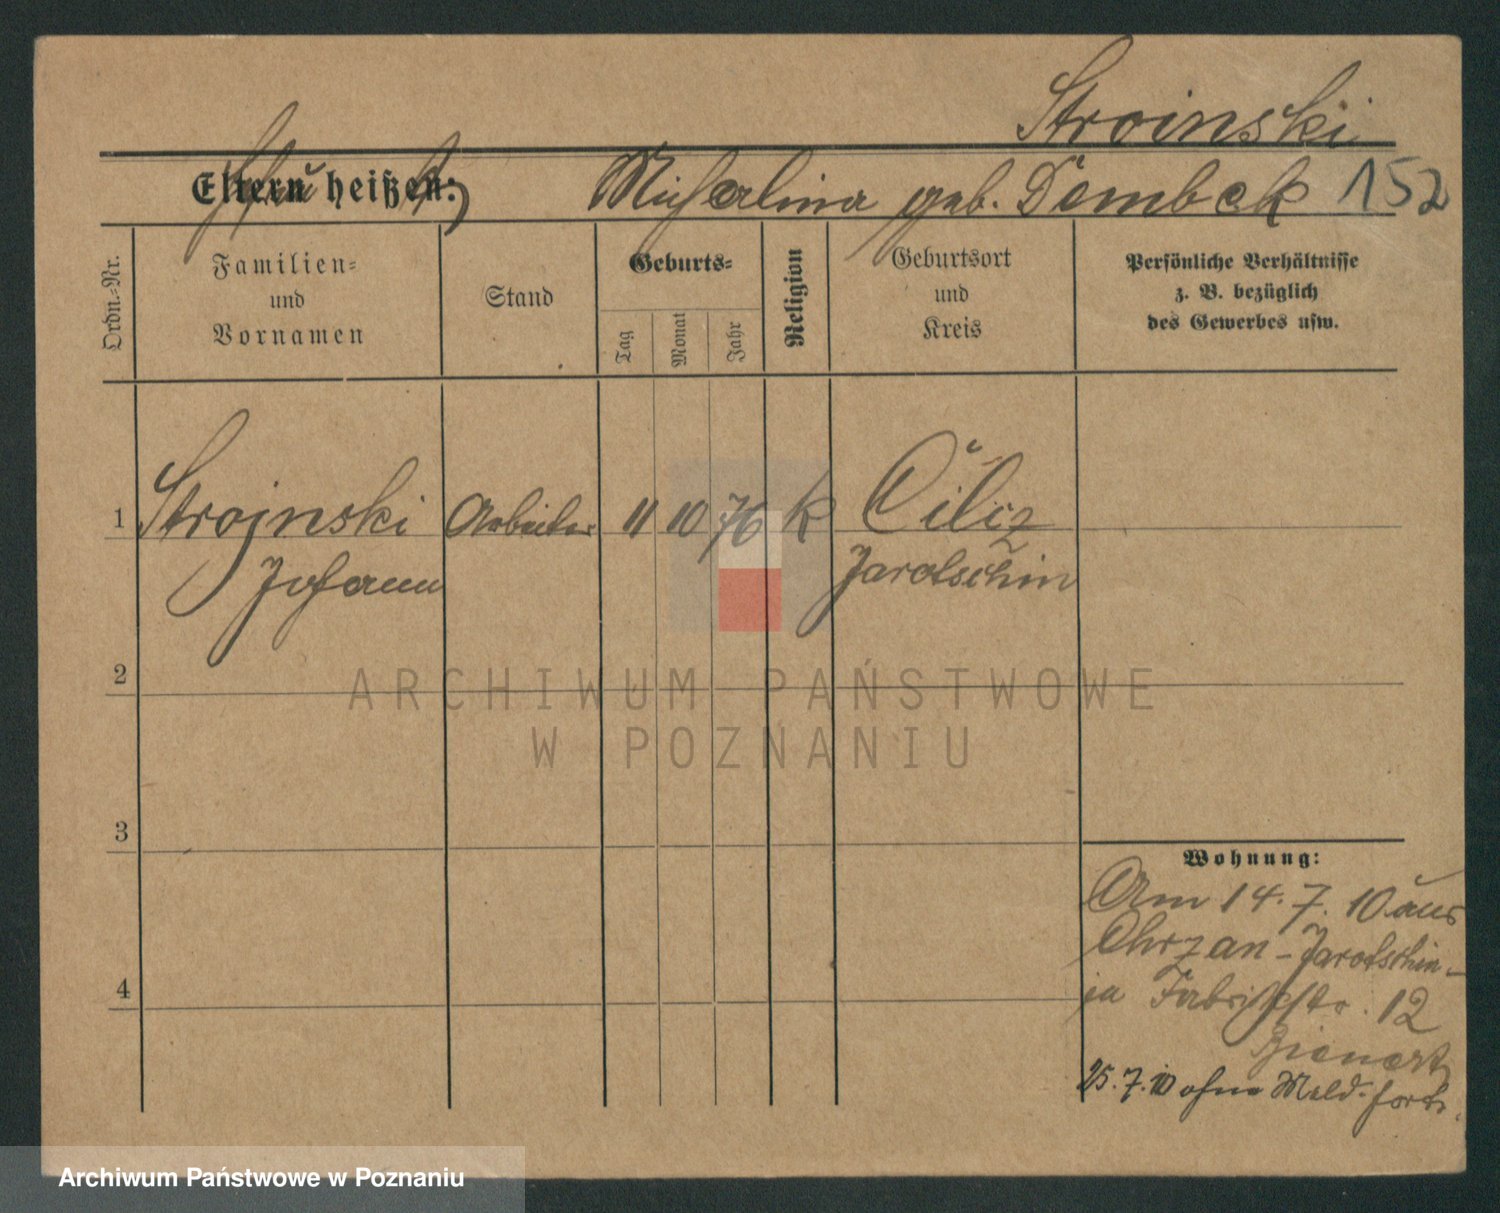 Stroinski
Eltern heißen: Michalina geb. Dembek 152
Ordn.-Nr.
Familien-
und
Vornamen
Stand
Geburts-
Tag
Monat
Jahr
Religion
Geburtsort
und
Kreis
Persönliche Verhältnisse
z. B. bezüglich
des Gewerbes usw.
1 Strojnski Arbeiter 11 10 76 k Cilcz
Johann Jarotschin
2
ARCHIWUM PAŃSTWOWE
W POZNANIU
3
Wohnung:
Am 14.7.10 aus
Chrzan - Jarotschin -
Fabrikstr. 12
4
25.7.10 ohne Meld. fort.
Archiwum Państwowe w Poznaniu